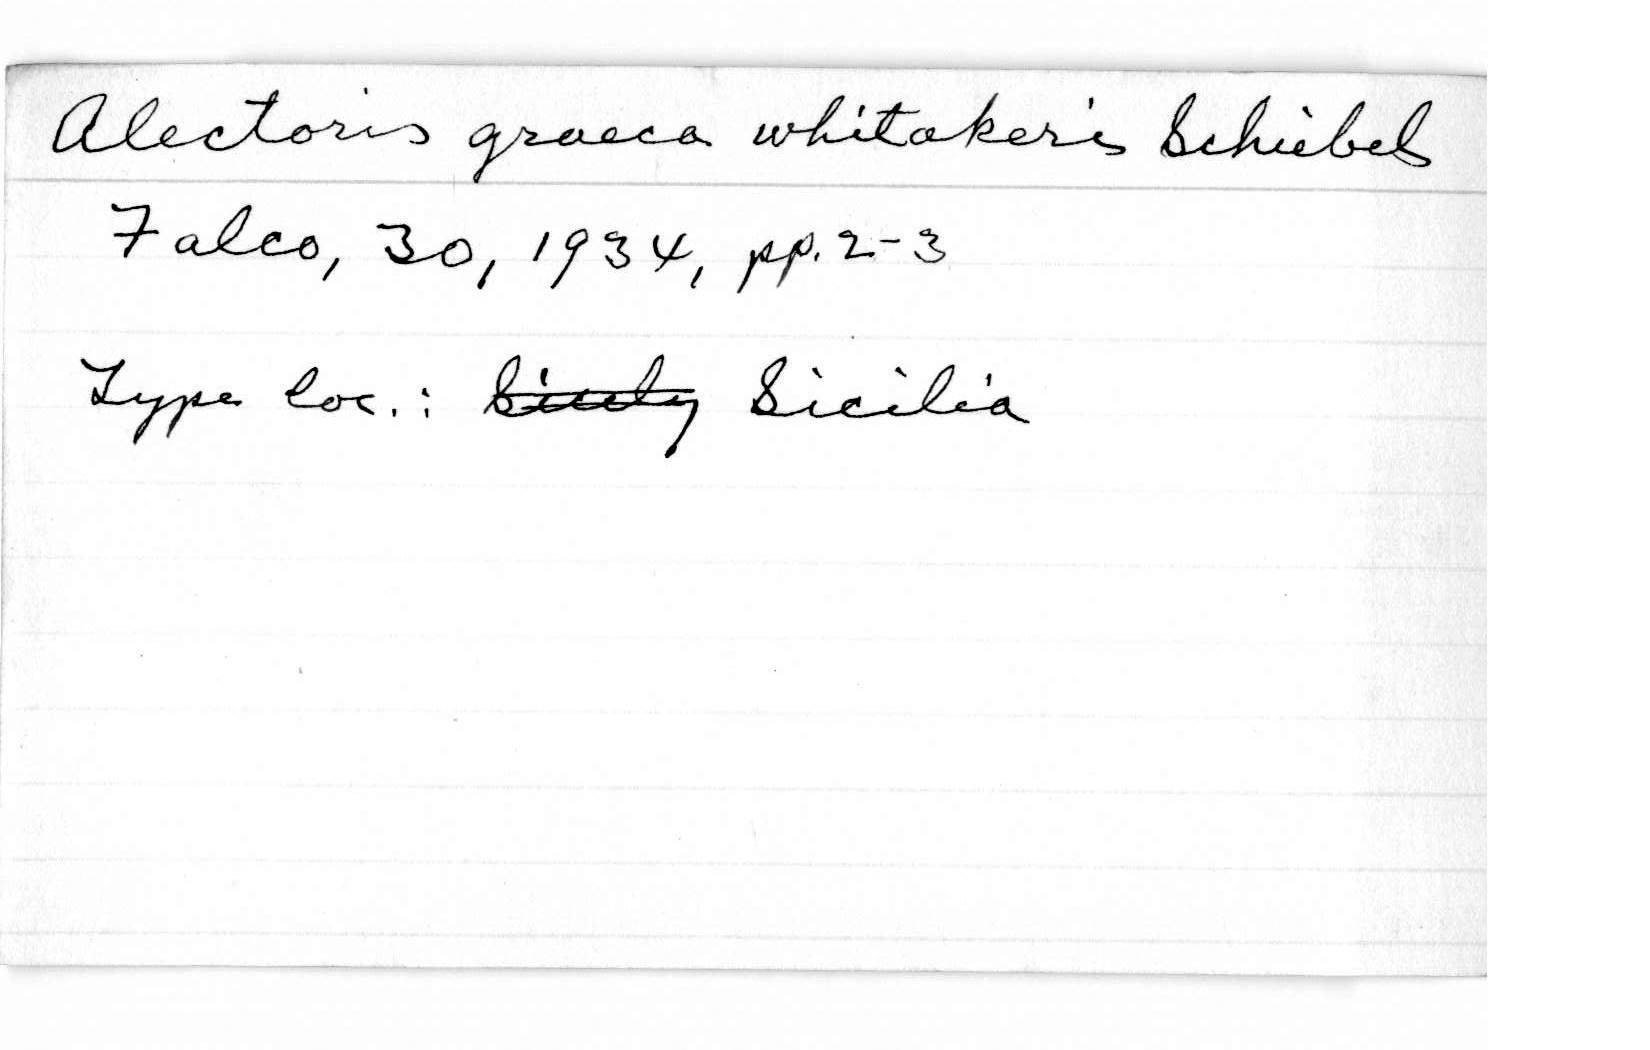 Alectoris graeca whitakeri Schiebel
Falco, 30, 1934, pp. 2-3
Type loc.: Sicily Sicilia